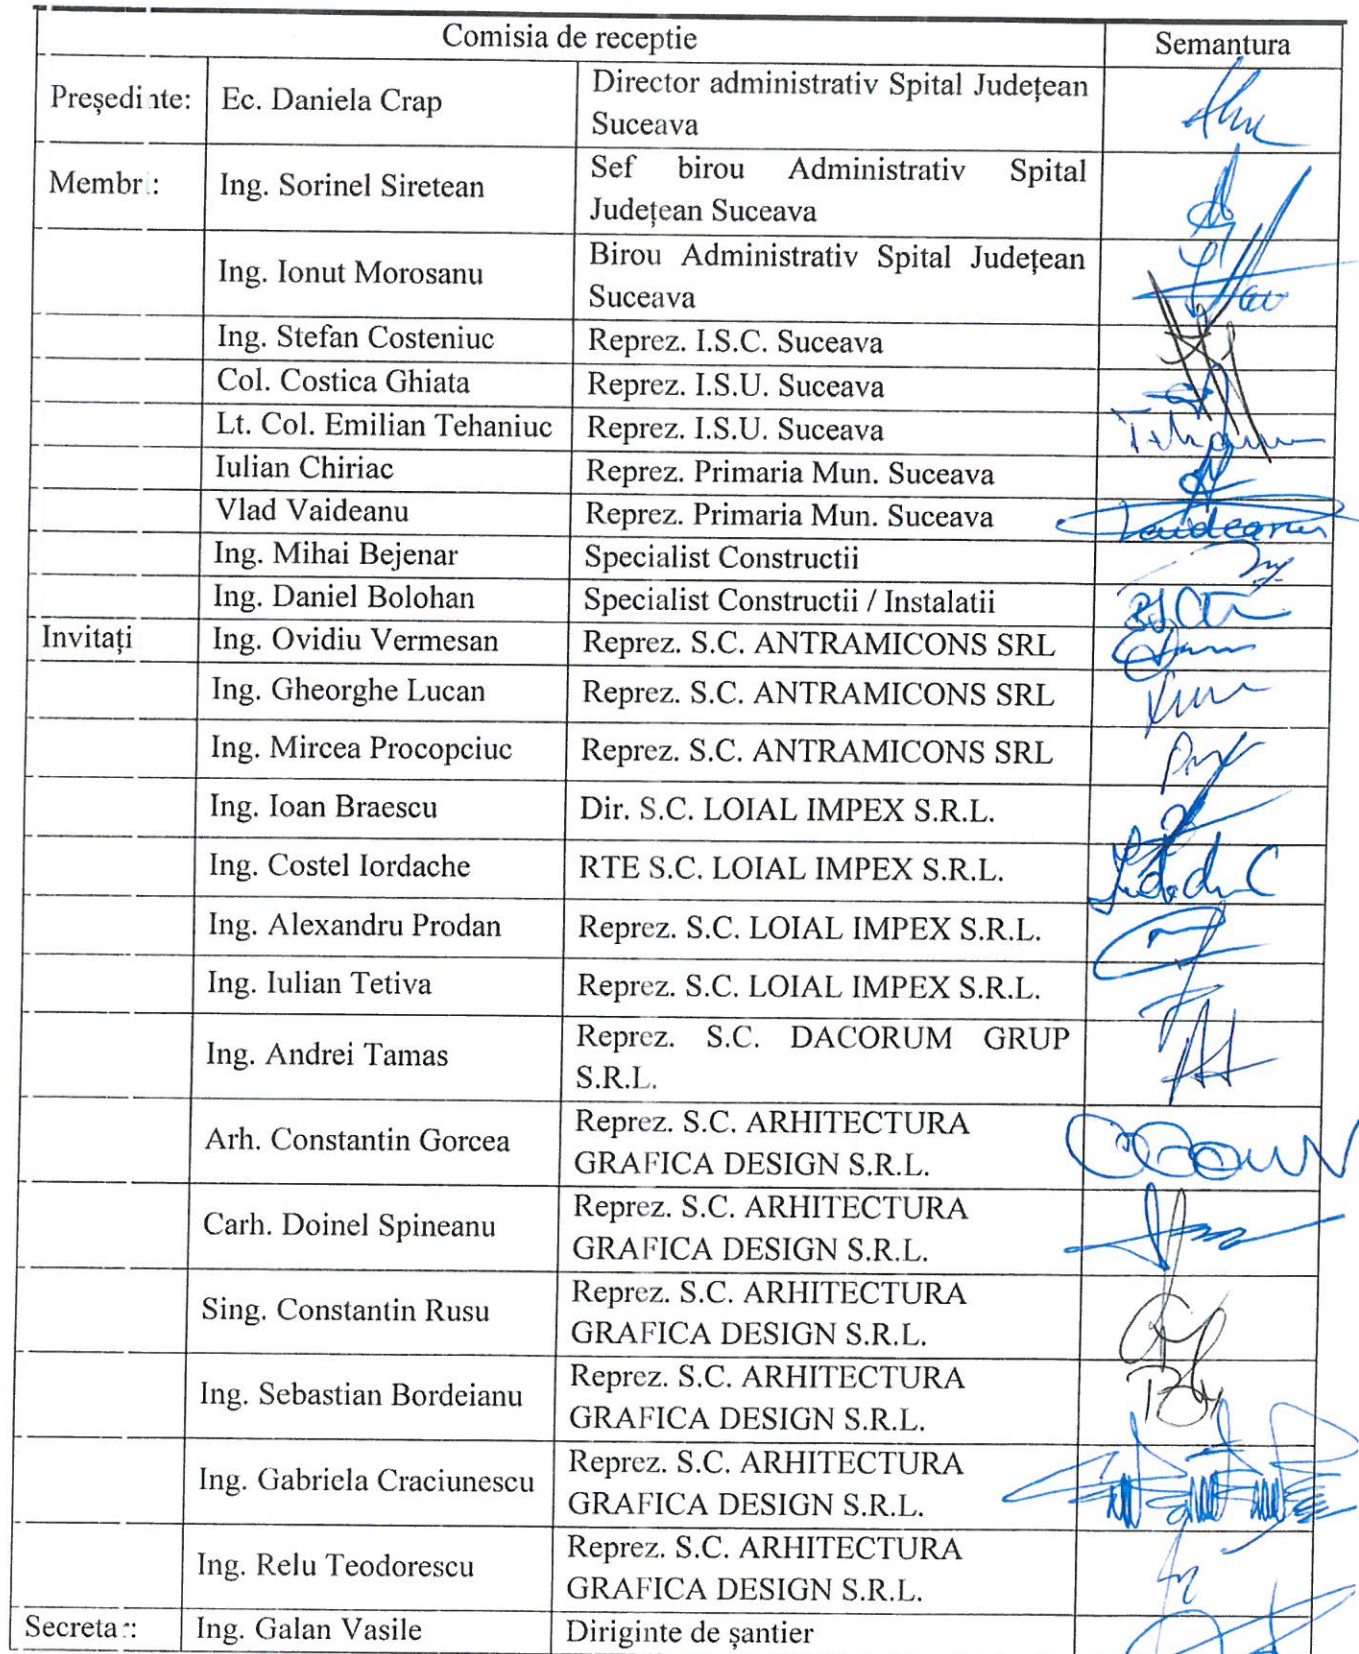 Comisia de receptie Semantura
Președinte: Ec. Daniela Crap Director administrativ Spital Județean
Suceava
Membri: Ing. Sorinel Siretean Sef birou Administrativ Spital
Județean Suceava
Ing. Ionut Morosanu Birou Administrativ Spital Județean
Suceava
Ing. Stefan Costeniuc Reprez. I.S.C. Suceava
Col. Costica Ghiata Reprez. I.S.U. Suceava
Lt. Col. Emilian Tehaniuc Reprez. I.S.U. Suceava
Iulian Chiriac Reprez. Primaria Mun. Suceava
Vlad Vaideanu Reprez. Primaria Mun. Suceava Vaideanu
Ing. Mihai Bejenar Specialist Constructii
Ing. Daniel Bolohan Specialist Constructii / Instalatii
Invitați Ing. Ovidiu Vermesan Reprez. S.C. ANTRAMICONS SRL
Ing. Gheorghe Lucan Reprez. S.C. ANTRAMICONS SRL
Ing. Mircea Procopciuc Reprez. S.C. ANTRAMICONS SRL
Ing. Ioan Braescu Dir. S.C. LOIAL IMPEX S.R.L.
Ing. Costel Iordache RTE S.C. LOIAL IMPEX S.R.L.
Ing. Alexandru Prodan Reprez. S.C. LOIAL IMPEX S.R.L.
Ing. Iulian Tetiva Reprez. S.C. LOIAL IMPEX S.R.L.
Ing. Andrei Tamas Reprez. S.C. DACORUM GRUP
S.R.L.
Arh. Constantin Gorcea Reprez. S.C. ARHITECTURA
GRAFICA DESIGN S.R.L.
Carh. Doinel Spineanu Reprez. S.C. ARHITECTURA
GRAFICA DESIGN S.R.L.
Sing. Constantin Rusu Reprez. S.C. ARHITECTURA
GRAFICA DESIGN S.R.L.
Ing. Sebastian Bordeianu Reprez. S.C. ARHITECTURA
GRAFICA DESIGN S.R.L.
Ing. Gabriela Craciunescu Reprez. S.C. ARHITECTURA
GRAFICA DESIGN S.R.L.
Ing. Relu Teodorescu Reprez. S.C. ARHITECTURA
GRAFICA DESIGN S.R.L.
Secretar: Ing. Galan Vasile Diriginte de șantier